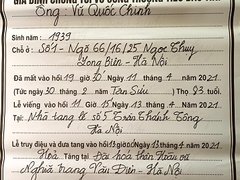 GIA ĐÌNH CHÚNG TÔI VÔ CÙNG THƯƠNG TIẾC BÁO TIN
Ông: Vũ Quốc Chinh
Sinh năm: 1939
Chỗ ở Số 1 - Ngõ 66/16/25 Ngọc Thụy
Long Biên - Hà Nội
Đã mất vào hồi 19 giờ 30 ngày 11 tháng 4 năm 2021
tức ngày 30 tháng 2 năm Tân Sửu Thọ: 83 tuổi
Lễ viếng vào hồi 11 giờ 15 ngày 13 tháng 4 năm 2021
tại Nhà tang lễ số 5 Trần Thánh Tông
Hà Nội
Lễ truy điệu và đưa tang vào hồi 13 giờ ngày 13 tháng 4 năm 2021
Hỏa Táng tại Đài hóa thân Hoàn vũ
Nghĩa trang Văn Điển - Hà Nội